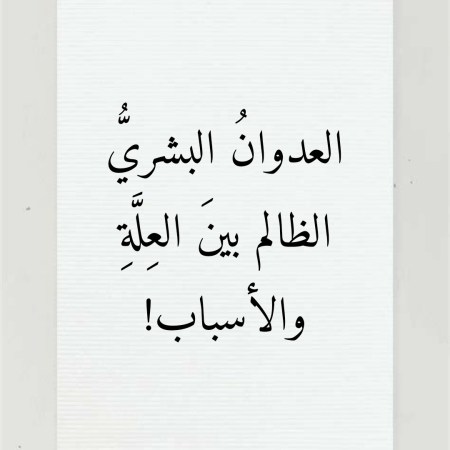 العدوانُ البشريُّ
الظالم بينَ العِلَّةِ
والأسباب!